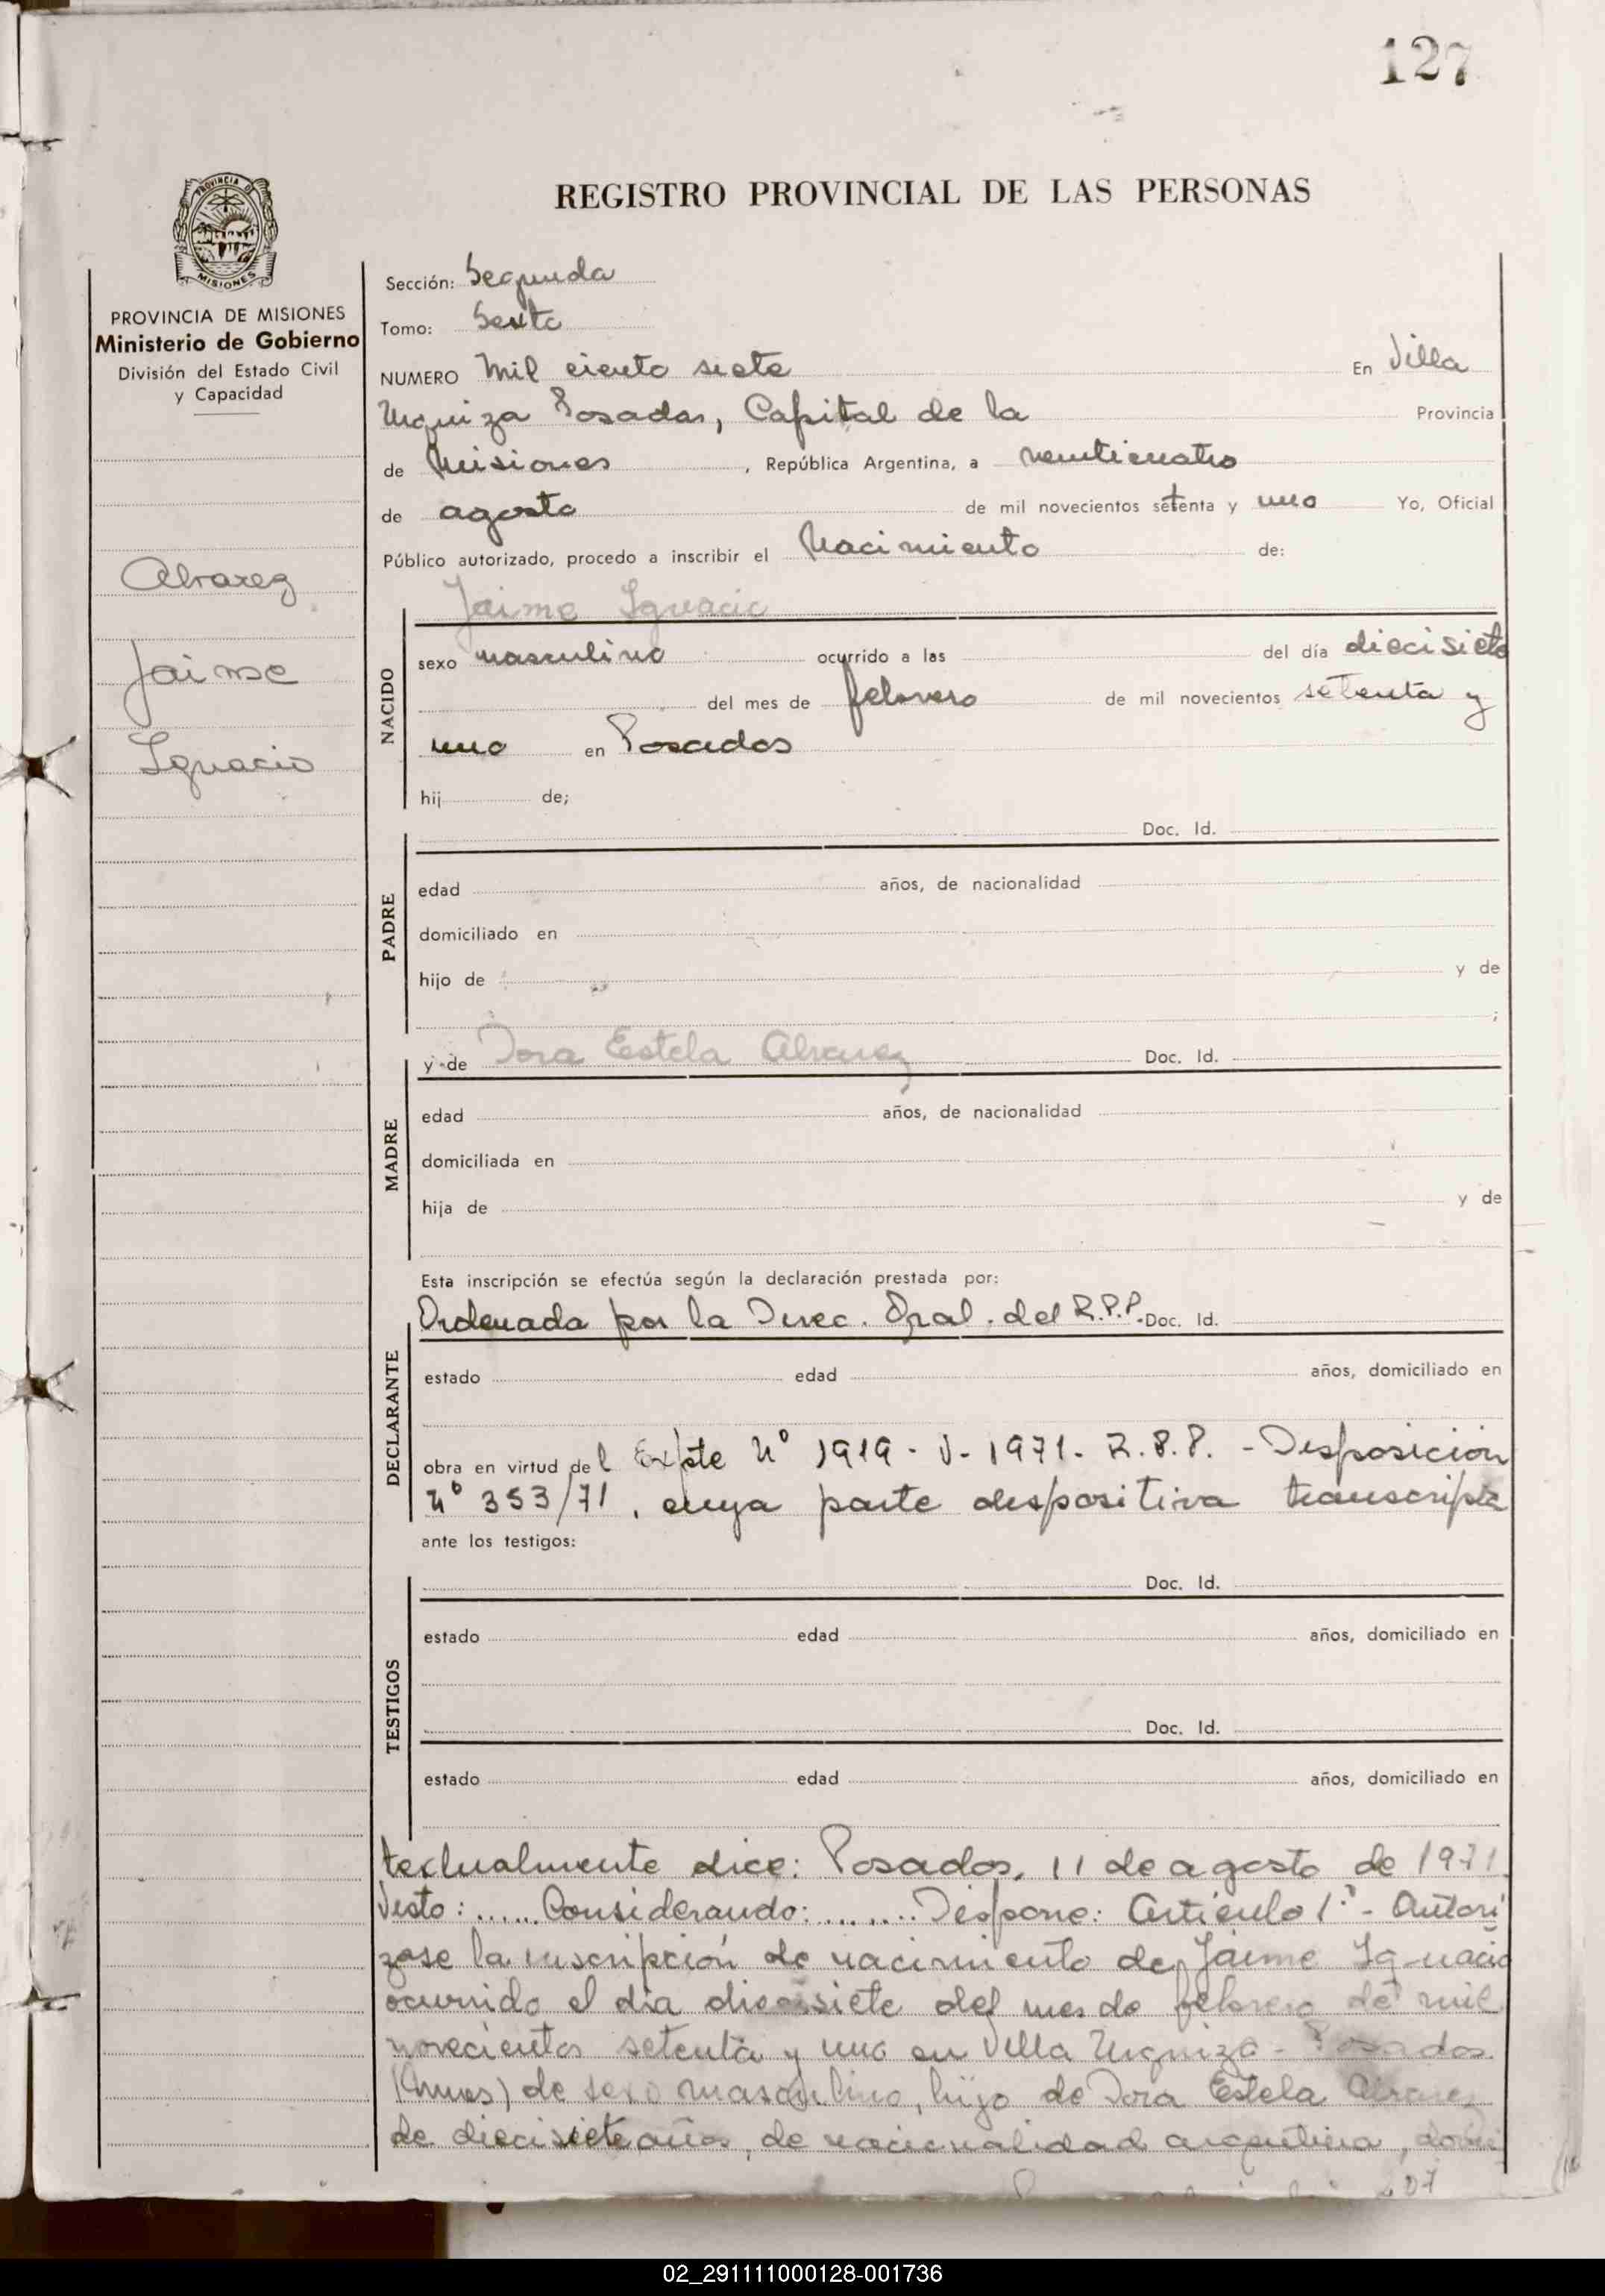 127
REGISTRO PROVINCIAL DE LAS PERSONAS
PROVINCIA DE MISIONES
PROVINCIA DE MISIONES
Ministerio de Gobierno
División del Estado Civil
y Capacidad
Alvarez
Jaime
Ignacio
Sección: Segunda
Tomo: Sexto
NUMERO Mil ciento siete En Villa
Urquiza Posadas, Capital de la Provincia
de Misiones, República Argentina, a veinticuatro
de agosto de mil novecientos setenta y uno Yo, Oficial
Público autorizado, procedo a inscribir el Nacimiento de:
Jaime Ignacio
NACIDO
sexo masculino ocurrido a las del día diecisiete
del mes de febrero de mil novecientos setenta y
uno en Posadas
hij de;
PADRE
Doc. Id.
edad años, de nacionalidad
domiciliado en
hijo de y de
;
MADRE
y de Dora Estela Alvarez Doc. Id.
edad años, de nacionalidad
domiciliada en
hija de y de
Esta inscripción se efectúa según la declaración prestada por:
DECLARANTE
Ordenada por la Direc. Gral. del R.P.P. Doc. Id.
estado edad años, domiciliado en
obra en virtud del Expte Nº 1919 - V - 1971 - R.P.P. - Disposición
Nº 353/71, cuya parte dispositiva transcripta
ante los testigos:
TESTIGOS
Doc. Id.
estado edad años, domiciliado en
Doc. Id.
estado edad años, domiciliado en
textualmente dice: Posadas, 11 de agosto de 1971
Visto: ...... Considerando: ........ Dispone: Artículo 1º - Autori
zase la inscripción de nacimiento de Jaime Ignacio
ocurrido el día diecisiete del mes de febrero de mil
novecientos setenta y uno en Villa Urquiza - Posadas
de sexo masculino, hijo de Dora Estela Alvarez
de diecisiete años, de nacionalidad argentina, domi
02_291111000128-001736